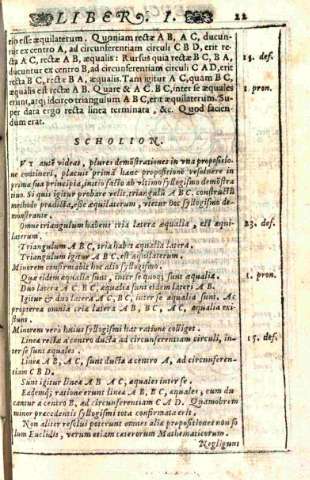 LIBER. I. 22
rio esse æquilaterum. Quoniam rectæ A B, A C, ducun-
tur ex centro A, ad circunferentiam circuli C B D, erit re-
cta A C, rectæ A B, æqualis: Rursus quia rectæ B C, B A,
ducuntur ex centro B, ad circunferentiam circuli C A D, erit
recta B C, rectæ B A, æqualis. Tam igitur A C, quàm B C,
æqualis est rectæ A B. Quare & A C. B C, inter se æquales
erunt, atq; idcirco triangulum A B C, erit æquilaterum. Su-
per data ergo recta linea terminata, &c. Quod facien-
dum erat.
15. def.
1. pron.
SCHOLION.
VT autē videas, plures demōstrationes in vna propositio-
ne contineri, placuit primā hanc propositionē resoluere in
prima sua principia, initio facto ab vltimo syllogismo demōstra
tiuo. Si quis igitur probare velit, triangulū A B C, constructū
methodo prædicta, esse æquilaterum, vtetur hoc syllogismo de-
monstrante.
Omne triangulum habens tria latera æqualia, est æqui-
laterum.
23. def.
Triangulum A B C, tria habet æqualia latera.
Triangulum igitur A B C, est æquilaterum.
Minorem confirmabit hoc alio syllogismo.
Quæ eidem æqualia sunt, inter se quoq; sunt æqualia.
1. pron.
Duo latera A C, B C, æqualia sunt eidem lateri A B.
Igitur & duo latera A C, B C, inter se æqualia sunt. Ac
propterea omnia tria latera A B, B C, A C, æqualia exi-
stunt.
Minorem verò huius syllogismi hac ratione colliget.
Lineæ rectæ à centro ductæ ad circunferentiam circuli, in-
ter se sunt æquales.
15. def.
Lineæ A B, A C, sunt ductæ à centro A, ad circunferen-
tiam C B D.
Sunt igitur lineæ A B, A C, æquales inter se.
Eademq; ratione erunt lineæ A B, B C, æquales, cum du
cantur à centro B, ad circunferentiam C A D. Quamobrem
minor præcedentis syllogismi tota confirmata erit.
Non aliter resolui poterunt omnes aliæ propositiones non so
lum Euclidis, verum etiam cæterorum Mathematicorum.
Negligunt